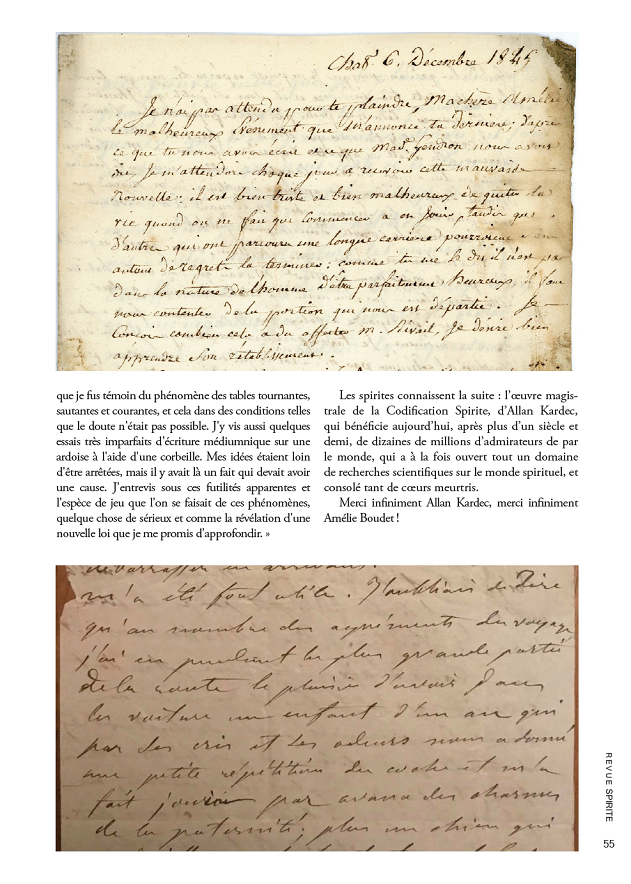 Chatᵘ 6. Décembre 1845
Je n'ai pas attendu pour te plaindre, Ma chère Amélie
le malheureux Evénement que m'annonce ta dernière; d'après
ce que tu nous avois écrit et ce que Mad. Gendron nous avoit
dit, Je m'attendois chaque jour à recevoir cette mauvaise
Nouvelle; il est bien triste et bien malheureux de quitter la
vie quand on ne fait que Commencer à en jouir, tandis que
d'autres qui ont parcouru une longue carrière pourroient
sans regrets la terminer: comme tu me le dis il n'est pas
dans la nature de l'homme d'être parfaitement heureux, il faut
nous contenter de la portion qui nous est départie. Je
Conçois combien cela a du affecter M. Rivail, Je désire bien
apprendre Son rétablissement.
que je fus témoin du phénomène des tables tournantes,
sautantes et courantes, et cela dans des conditions telles
que le doute n'était pas possible. J'y vis aussi quelques
essais très imparfaits d'écriture médiumnique sur une
ardoise à l'aide d'une corbeille. Mes idées étaient loin
d'être arrêtées, mais il y avait là un fait qui devait avoir
une cause. J'entrevis sous ces futilités apparentes et
l'espèce de jeu que l'on se faisait de ces phénomènes,
quelque chose de sérieux et comme la révélation d'une
nouvelle loi que je me promis d'approfondir. »
Les spirites connaissent la suite : l'œuvre magis-
trale de la Codification Spirite, d'Allan Kardec,
qui bénéficie aujourd'hui, après plus d'un siècle et
demi, de dizaines de millions d'admirateurs de par
le monde, qui a à la fois ouvert tout un domaine
de recherches scientifiques sur le monde spirituel, et
consolé tant de cœurs meurtris.
Merci infiniment Allan Kardec, merci infiniment
Amélie Boudet !
débarrasser en arrivant.
m'a été fort utile. J'oubliais de dire
qu'au nombre des agréments du voyage
j'ai eu pendant la plus grande partie
de la route le plaisir d'avoir dans
la voiture un enfant d'un an qui
par ses cris et ses odeurs nous a donné
une petite répétition du coche et m'a
fait jouir par avance des charmes
de la paternité; plus un chien qui
REVUE SPIRITE
55